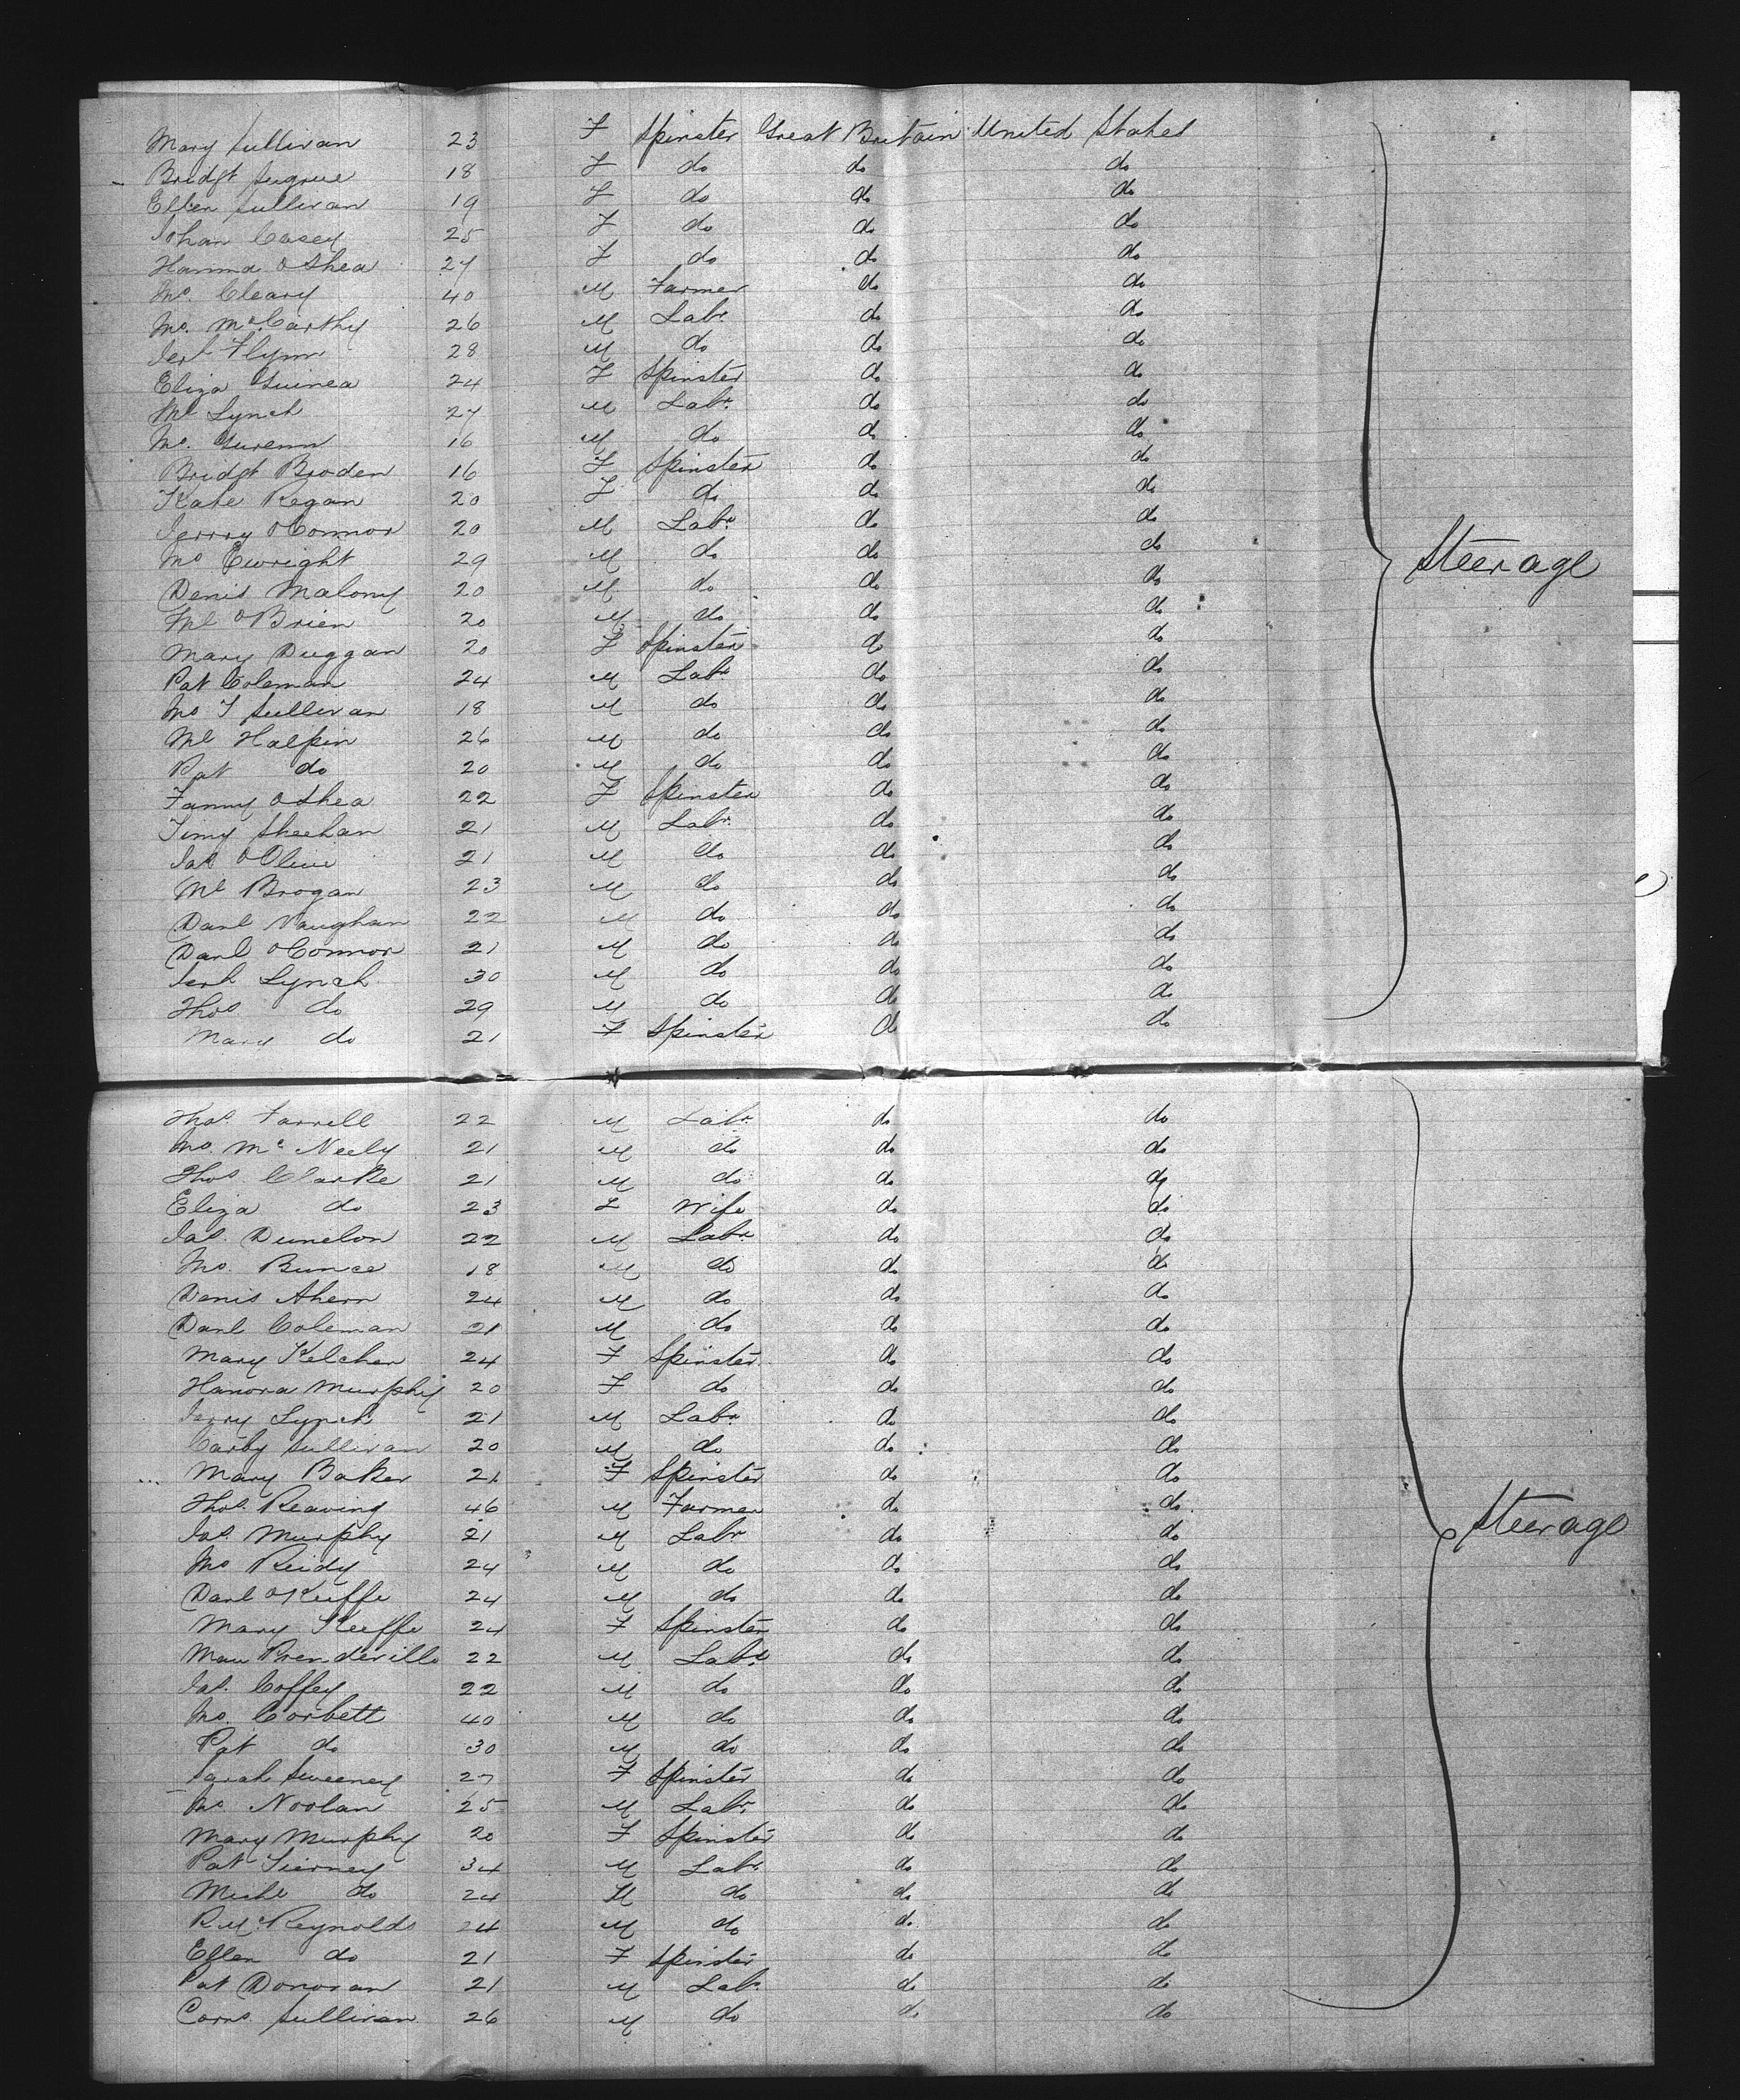 Mary Sullivan 23 F Spinster Great Britain United States
Bridgt Sugrue 18 F do do do
Ellen Sullivan 19 F do do do
Johan Casey 25 F do do do
Hanna O Shea 27 F do do do
Jno. Cleary 40 M Farmer do do
Jno. McCarthy 26 M Labr do do
Jerh Flynn 28 M do do do
Eliza Guinea 24 F Spinster do do
Ml Lynch 27 M Labr. do do
Jno. 16 M do do do
Bridgt Broden 16 F Spinster do do
Kate Regan 20 F do do do
Jerry O'Connor 20 M Labr. do do
Jno Ewright 29 M do do do
Denis Malony 20 M do do do
Ml O'Brien 20 M do do do
Mary Duggan 20 F Spinster do do
Pat Coleman 24 M Labr do do
Jno T Sullivan 18 M do do do
Ml Halpin 26 M do do do
Pat do 20 M do do do
Fanny O'Shea 22 F Spinster do do
Timy Sheehan 21 M Labr. do do
Jas 21 M do do do
Ml Brogan 23 M do do do
Danl Vaughan 22 M do do do
Danl O'Connor 21 M do do do
Jerh Lynch 30 M do do do
Thos do 29 M do do do
Mary do 21 F Spinster do do
Steerage
Thos. Farrell 22 M Labr. do do
Jno. Mc Neely 21 M do do do
Thos. Clarke 21 M do do do
Eliza do 23 F Wife do do
Jas. Dunelon 22 M Labr do do
Jno. Bunce 18 M do do do
Denis Ahern 24 M do do do
Danl Coleman 21 M do do do
Mary Kelcher 24 F Spinster do do
Hanora Murphy 20 F do do do
Jerry Lynch 21 M Labr do do
Carby Sullivan 20 M do do do
Mary Baker 21 F Spinster do do
Thos. Reaving 46 M Farmer do do
Jas. Murphy 21 M Labr do do
Jno Reidy 24 M do do do
Danl O'Keiffe 24 M do do do
Mary Keeffe 24 F Spinster do do
Mau Prenderville 22 M Labr do do
Jas. Coffey 22 M do do do
Jno. Corbett 40 M do do do
Pat do 30 M do do do
Sarah Sweeney 27 F Spinster do do
Jno. Noolan 25 M Labr. do do
Mary Murphy 20 F Spinster do do
Pat Tierney 34 M Labr do do
Michl do 24 M do do do
R Mc.Reynolds 24 M do do do
Ellen do 21 F Spinster do do
Pat Donovan 21 M Labr do do
Corns. Sullivan 26 M do do do
Steerage